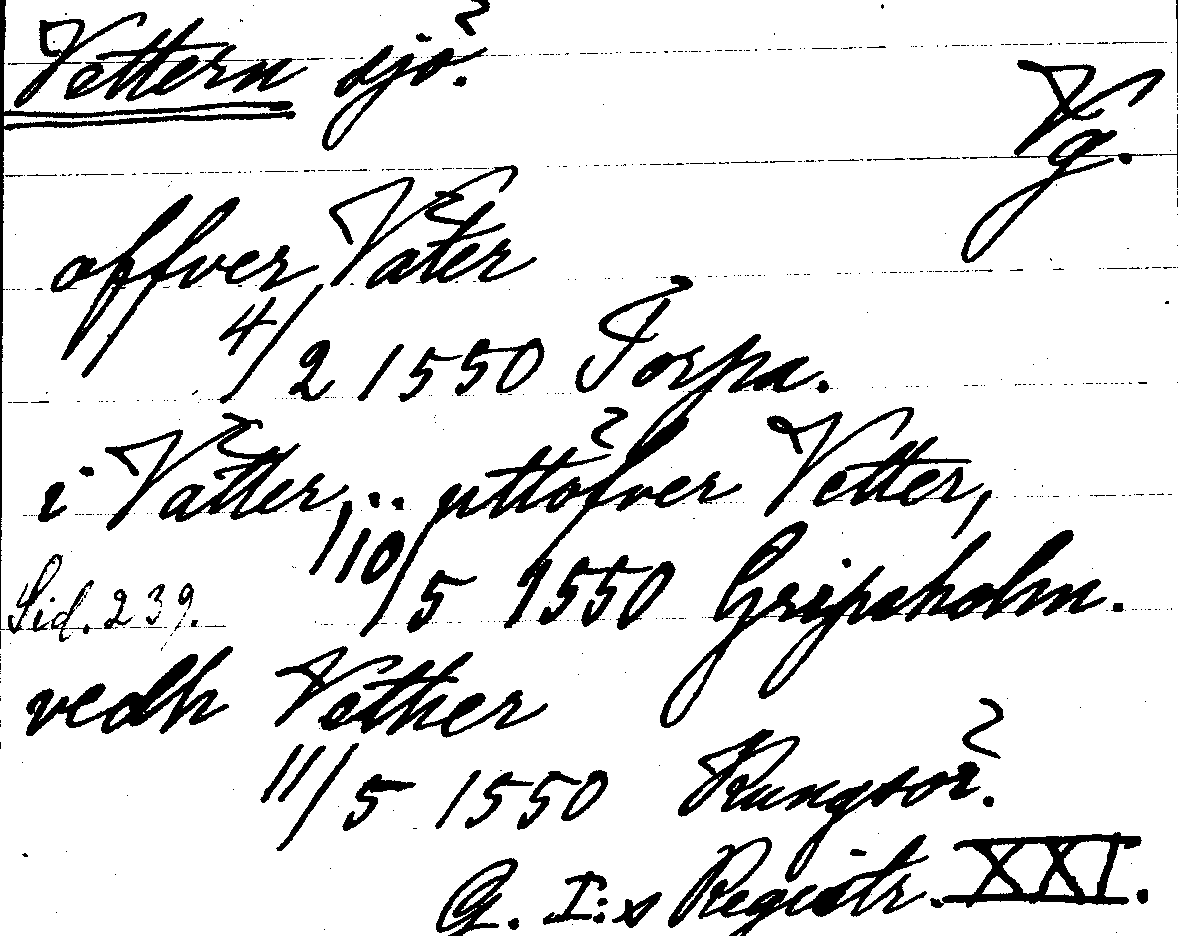 Vettern sjö.
Vg.
offverVäter
4/2 1550 Torpa.
i Vätter, .. uttöfver Vetter,
10/5 1550 Gripsholm.
Sid. 239.
vedh Vether
11/5 1550 Kungsör.
G. I:s Registr. XXI.